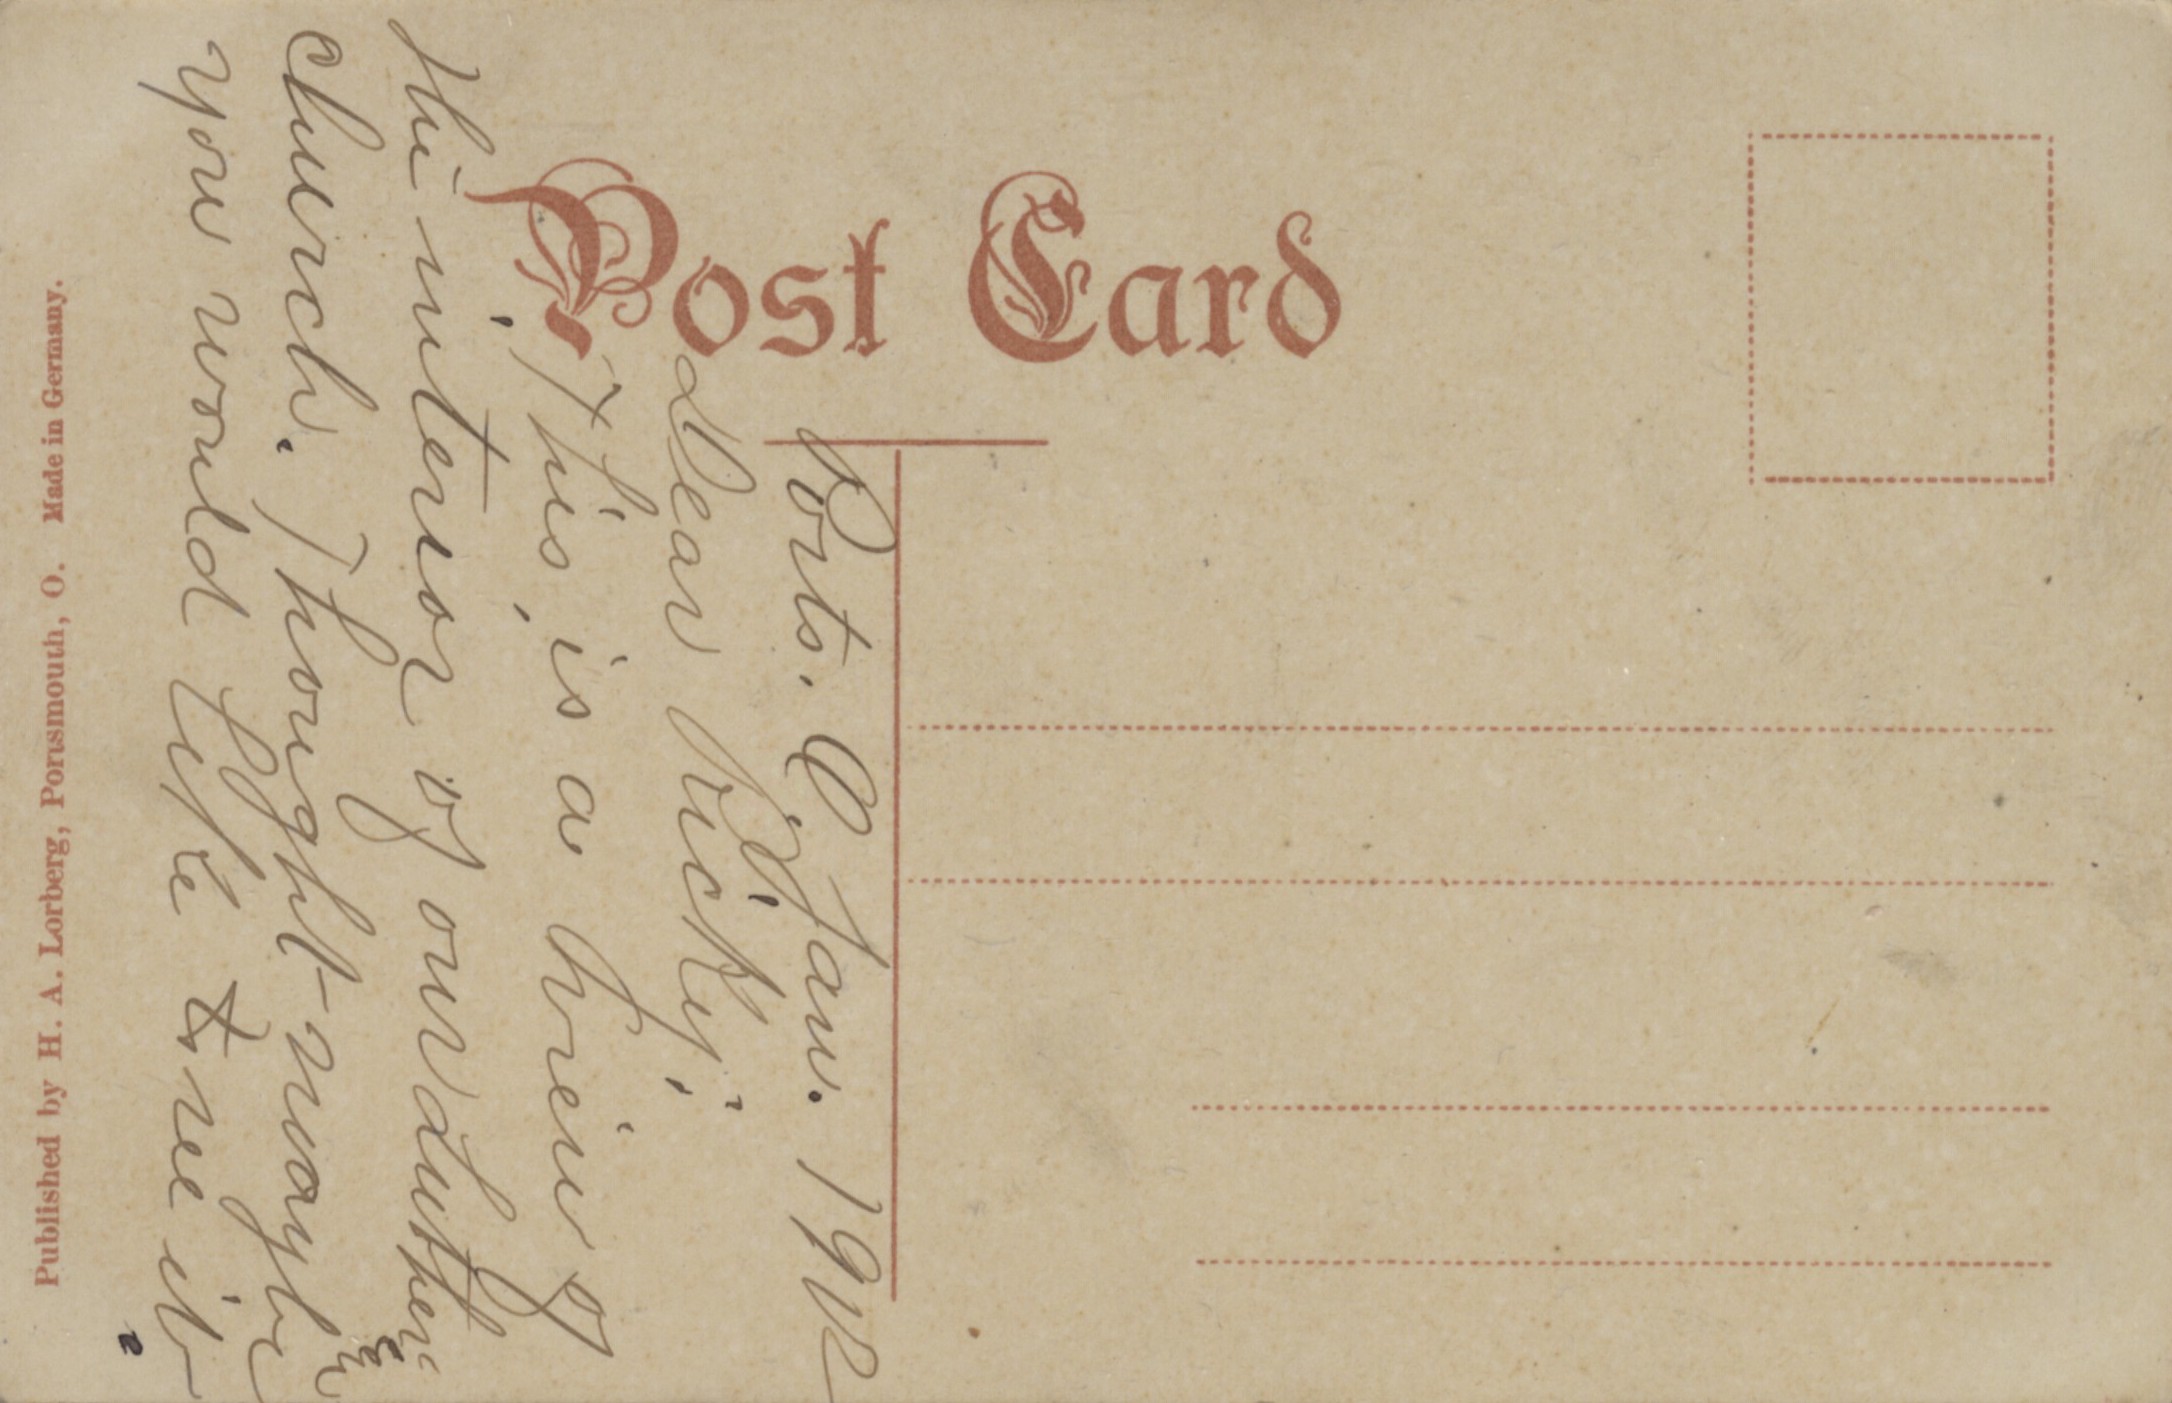 Post Card
Ports. O. Jan. 1912
Dear Vicky;
This, is a view of
the interior of our Lutheran
church. Thought maybe
you would like to see it.
Published by H. A. Lorberg, Portsmouth, O. Made in Germany.